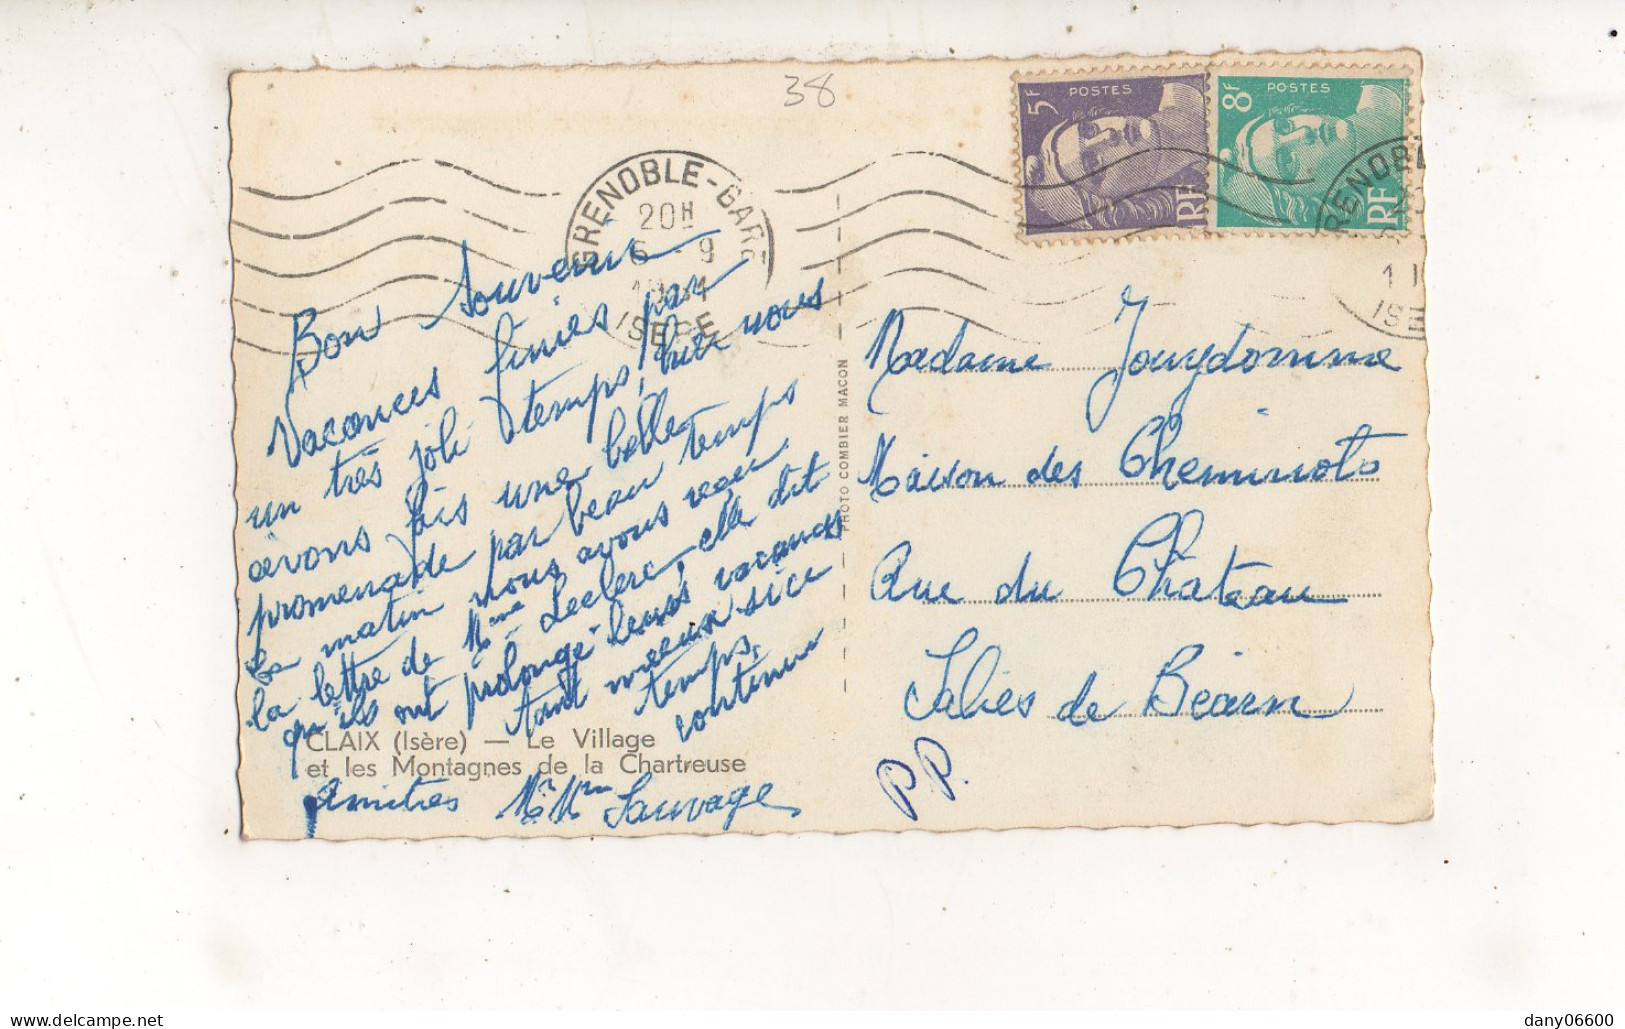 38
5F
POSTES
RF
8F
POSTES
RF
GRENOBLE-GARE
20H
6 - 9
1951
ISERE
Bon Souvenir
Vacances finies par
un très joli temps, hier nous
avons fais une belle
promenade par beau temps
Ce matin nous avons reçu
la lettre de Mme Leclerc, elle dit
qu'ils ont prolongé leurs vacances
tant mieux si ce
temps
continu
CLAIX (Isère) — Le Village
et les Montagnes de la Chartreuse
Amitiés M. Mme Sauvage
PHOTO COMBIER MACON
Madame Jouydomme
Maison des Cheminots
Rue du Château
Salies de Béarn
P.P.
delcampe.net
dany06600